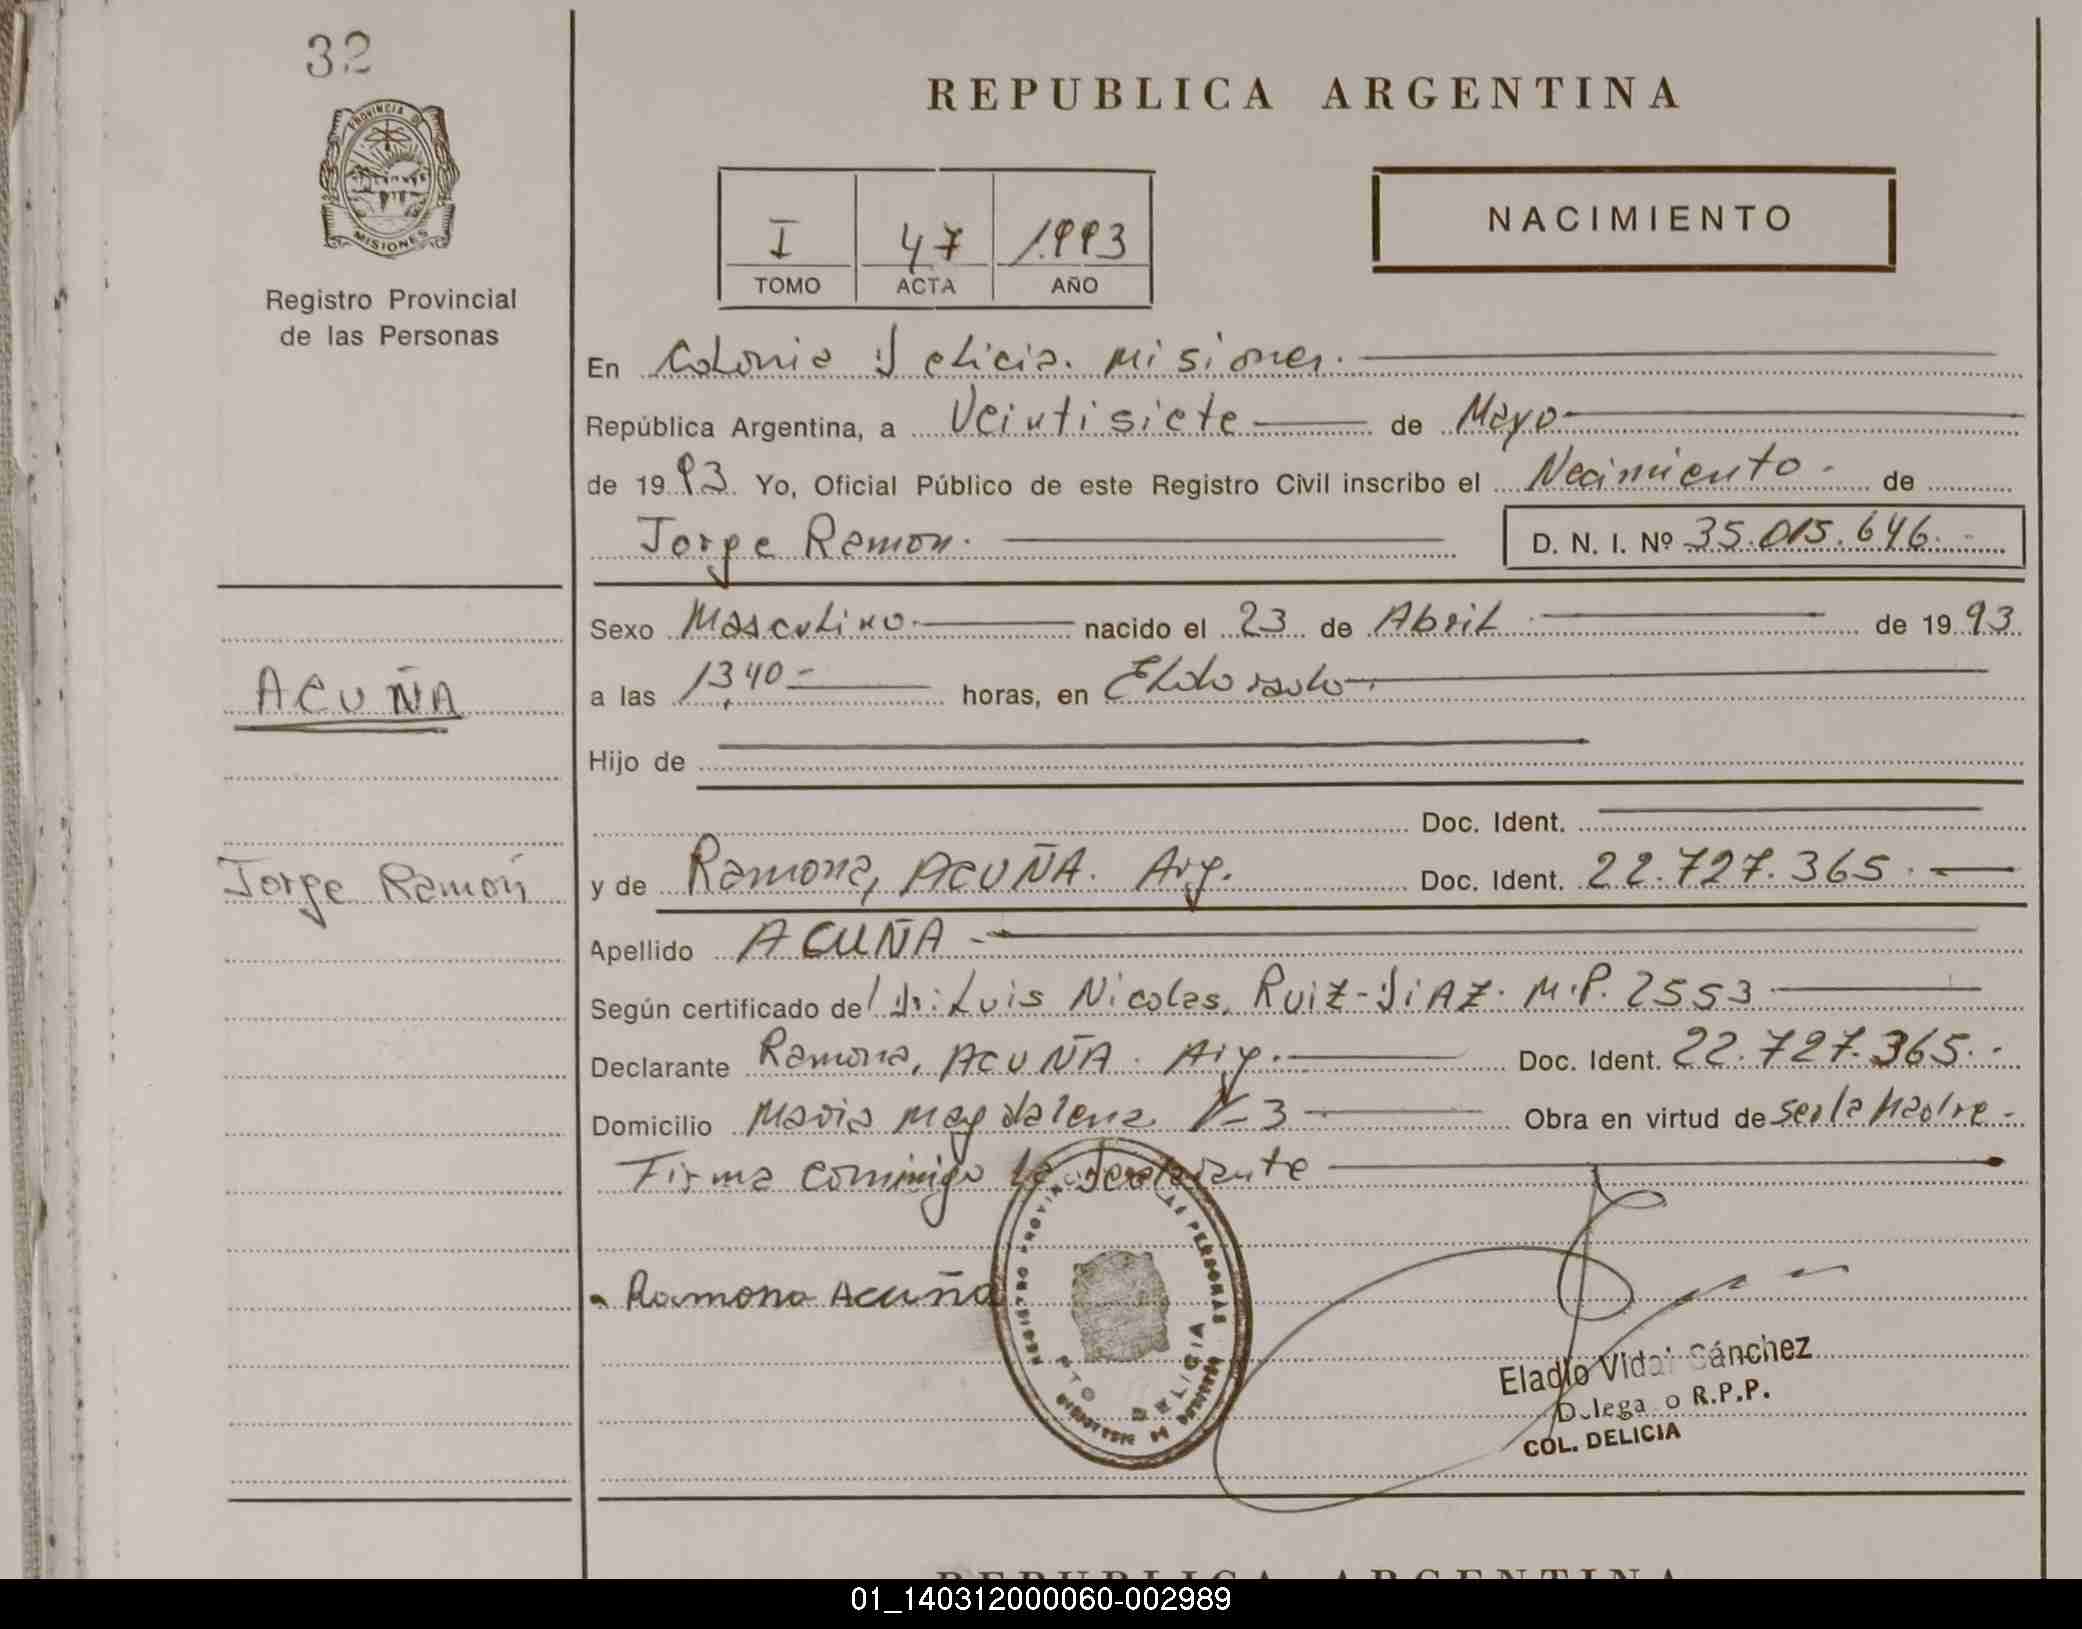 32
PROVINCIA DE
MISIONES
Registro Provincial
de las Personas
REPUBLICA ARGENTINA
I 47 1.993
TOMO ACTA AÑO
NACIMIENTO
En Colonia Delicia. Misiones.
República Argentina, a Veintisiete de Mayo
de 1993. Yo, Oficial Público de este Registro Civil inscribo el Nacimiento. de
Jorge Ramon. D. N. I. Nº 35.015.646.
Sexo Masculino. nacido el 23 de Abril de 1993
a las 13,40 horas, en Eldorado.
Hijo de
Doc. Ident.
y de Ramona, ACUÑA. Arg. Doc. Ident. 22.727.365.
Apellido ACUÑA
Según certificado del Dr: Luis Nicolas, RUIZ-DIAZ. M.P. 2553
Declarante Ramona, ACUÑA. Arg. Doc. Ident. 22.727.365.
Domicilio Maria Magdalena 3 Obra en virtud de ser la Madre.
Firma conmigo la declarante
ACUÑA
Jorge Ramón
Ramona Acuña
REGISTRO PROVINCIAL DE LAS PERSONAS
DELICIA
PROVINCIA DE MISIONES
Eladio Vidal Sánchez
Delegado R.P.P.
COL. DELICIA
REPUBLICA ARGENTINA
01_140312000060-002989